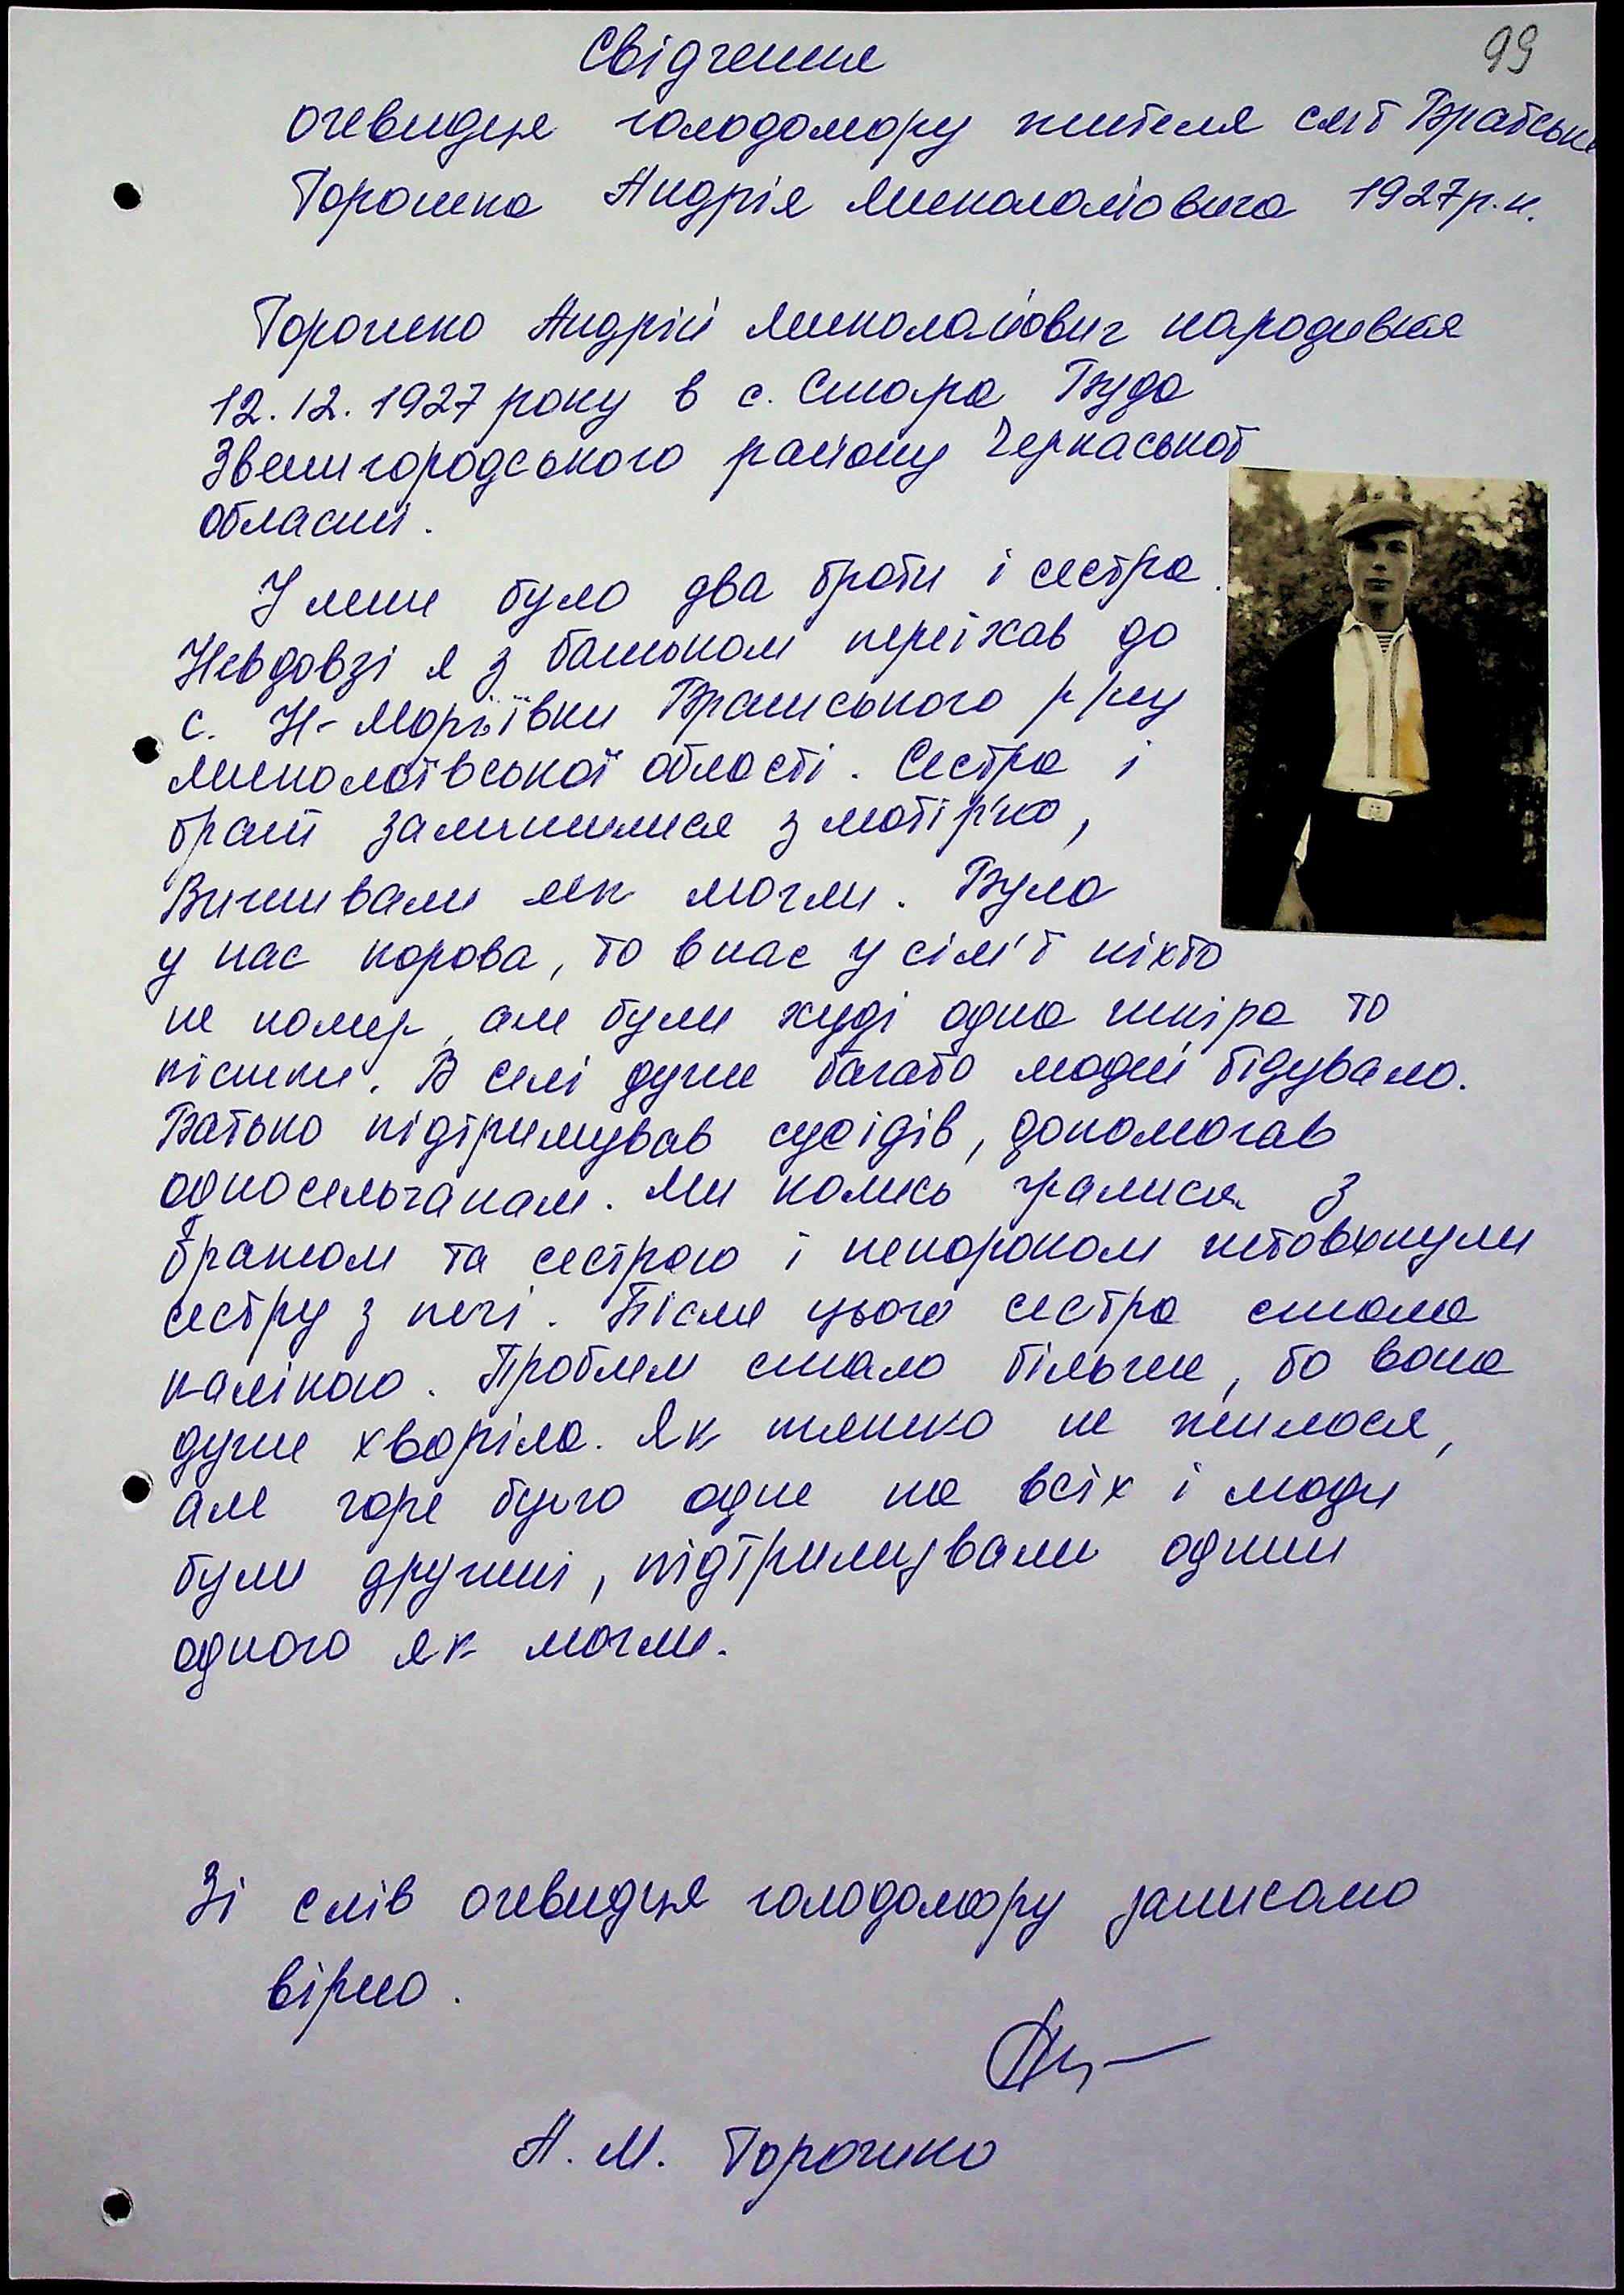 99
Свідчення
очевидця голодомору жителя смт Братськ
Горошка Андрія Миколайовича 1927р.н.
Горошко Андрій Миколайович народився
12.12.1927 року в с. Стара Буда
Звенигородського району Черкаської
області.
У мене було два брати і сестра.
Невдовзі я з батьком переїхав до
с. Н-Маріївки Братського р/ну
Миколаївської області. Сестра і
брат залишилися з матір'ю,
Виживали як могли. Була
у нас корова, то в нас у сім'ї ніхто
не помер, але були худі одна шкіра то
кістки. В селі дуже багато людей бідувало.
Батько підтримував сусідів, допомагав
односельчанам. Ми колись гралися з
братом та сестрою і ненароком штовхнули
сестру з печі. Після цього сестра стала
калікою. Проблем стало більше, бо вона
дуже хворіла. Як тяжко не жилося,
але горе було одне на всіх і люди
були дружні, підтримували один
одного як могли.
Зі слів очевидця голодомору записано
вірно.
А. М. Горошко